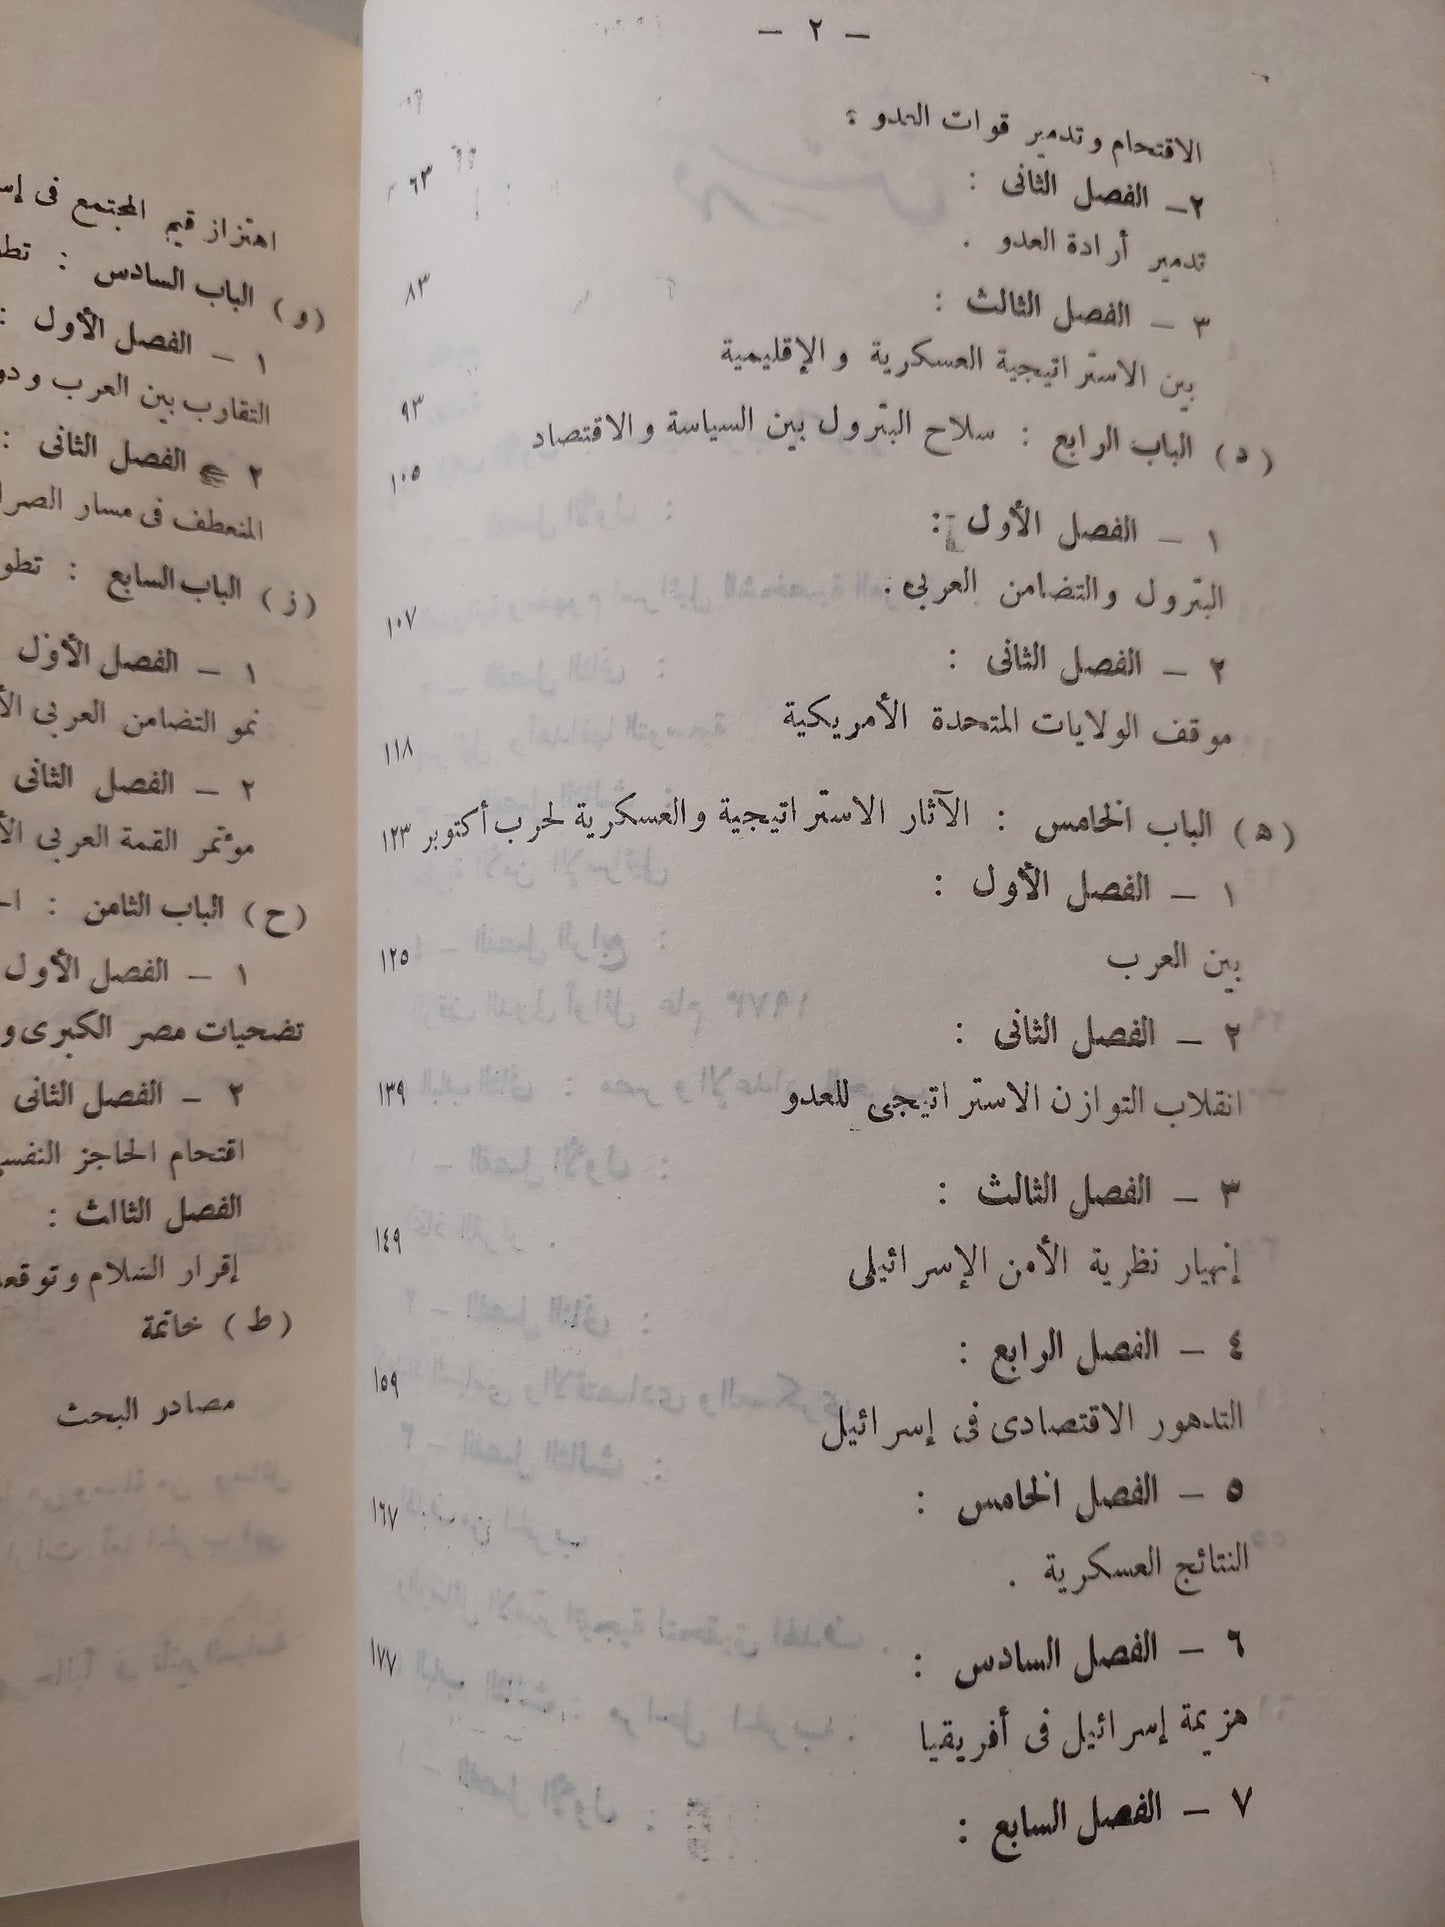 — ٢ —
الاقتحام وتدمير قوات العدو :
٢ — الفصل الثانى : ٦٣
تدمير أرادة العدو .
٣ — الفصل الثالث : ٨٣
بين الاستراتيجية العسكرية والإقليمية
٩٣
( د ) الباب الرابع : سلاح البترول بين السياسة والاقتصاد
١٠٥
١ — الفصل الأول :
البترول والتضامن العربى .
١٠٧
٢ — الفصل الثانى :
موقف الولايات المتحدة الأمريكية
١١٨
( ه ) الباب الخامس : الآثار الاستراتيجية والعسكرية لحرب أكتوبر ١٢٣
١ — الفصل الأول :
بين العرب ١٢٥
٢ — الفصل الثانى :
انقلاب التوازن الاستراتيجى للعدو ١٣٩
٣ — الفصل الثالث :
إنهيار نظرية الأمن الإسرائيلى ١٤٩
٤ — الفصل الرابع :
التدهور الاقتصادى فى إسرائيل ١٥٩
٥ — الفصل الخامس :
النتائج العسكرية . ١٦٧
٦ — الفصل السادس :
هزيمة إسرائيل فى أفريقيا ١٧٧
٧ — الفصل السابع :
اهتزاز قيم المجتمع فى
( و ) الباب السادس :
١ — الفصل الأول :
التقارب بين العرب
٢ الفصل الثانى :
المنعطف فى مسار
( ز ) الباب السابع :
١ — الفصل الأول
نمو التضامن العربى
٢ — الفصل الثانى
مؤتمر القمة العربى
( ح ) الباب الثامن :
١ — الفصل الأول
تضحيات مصر الكبرى و
٢ — الفصل الثانى
اقتحام الحاجز
الفصل الثالث :
إقرار السلام
( ط ) خاتمة
مصادر البحث